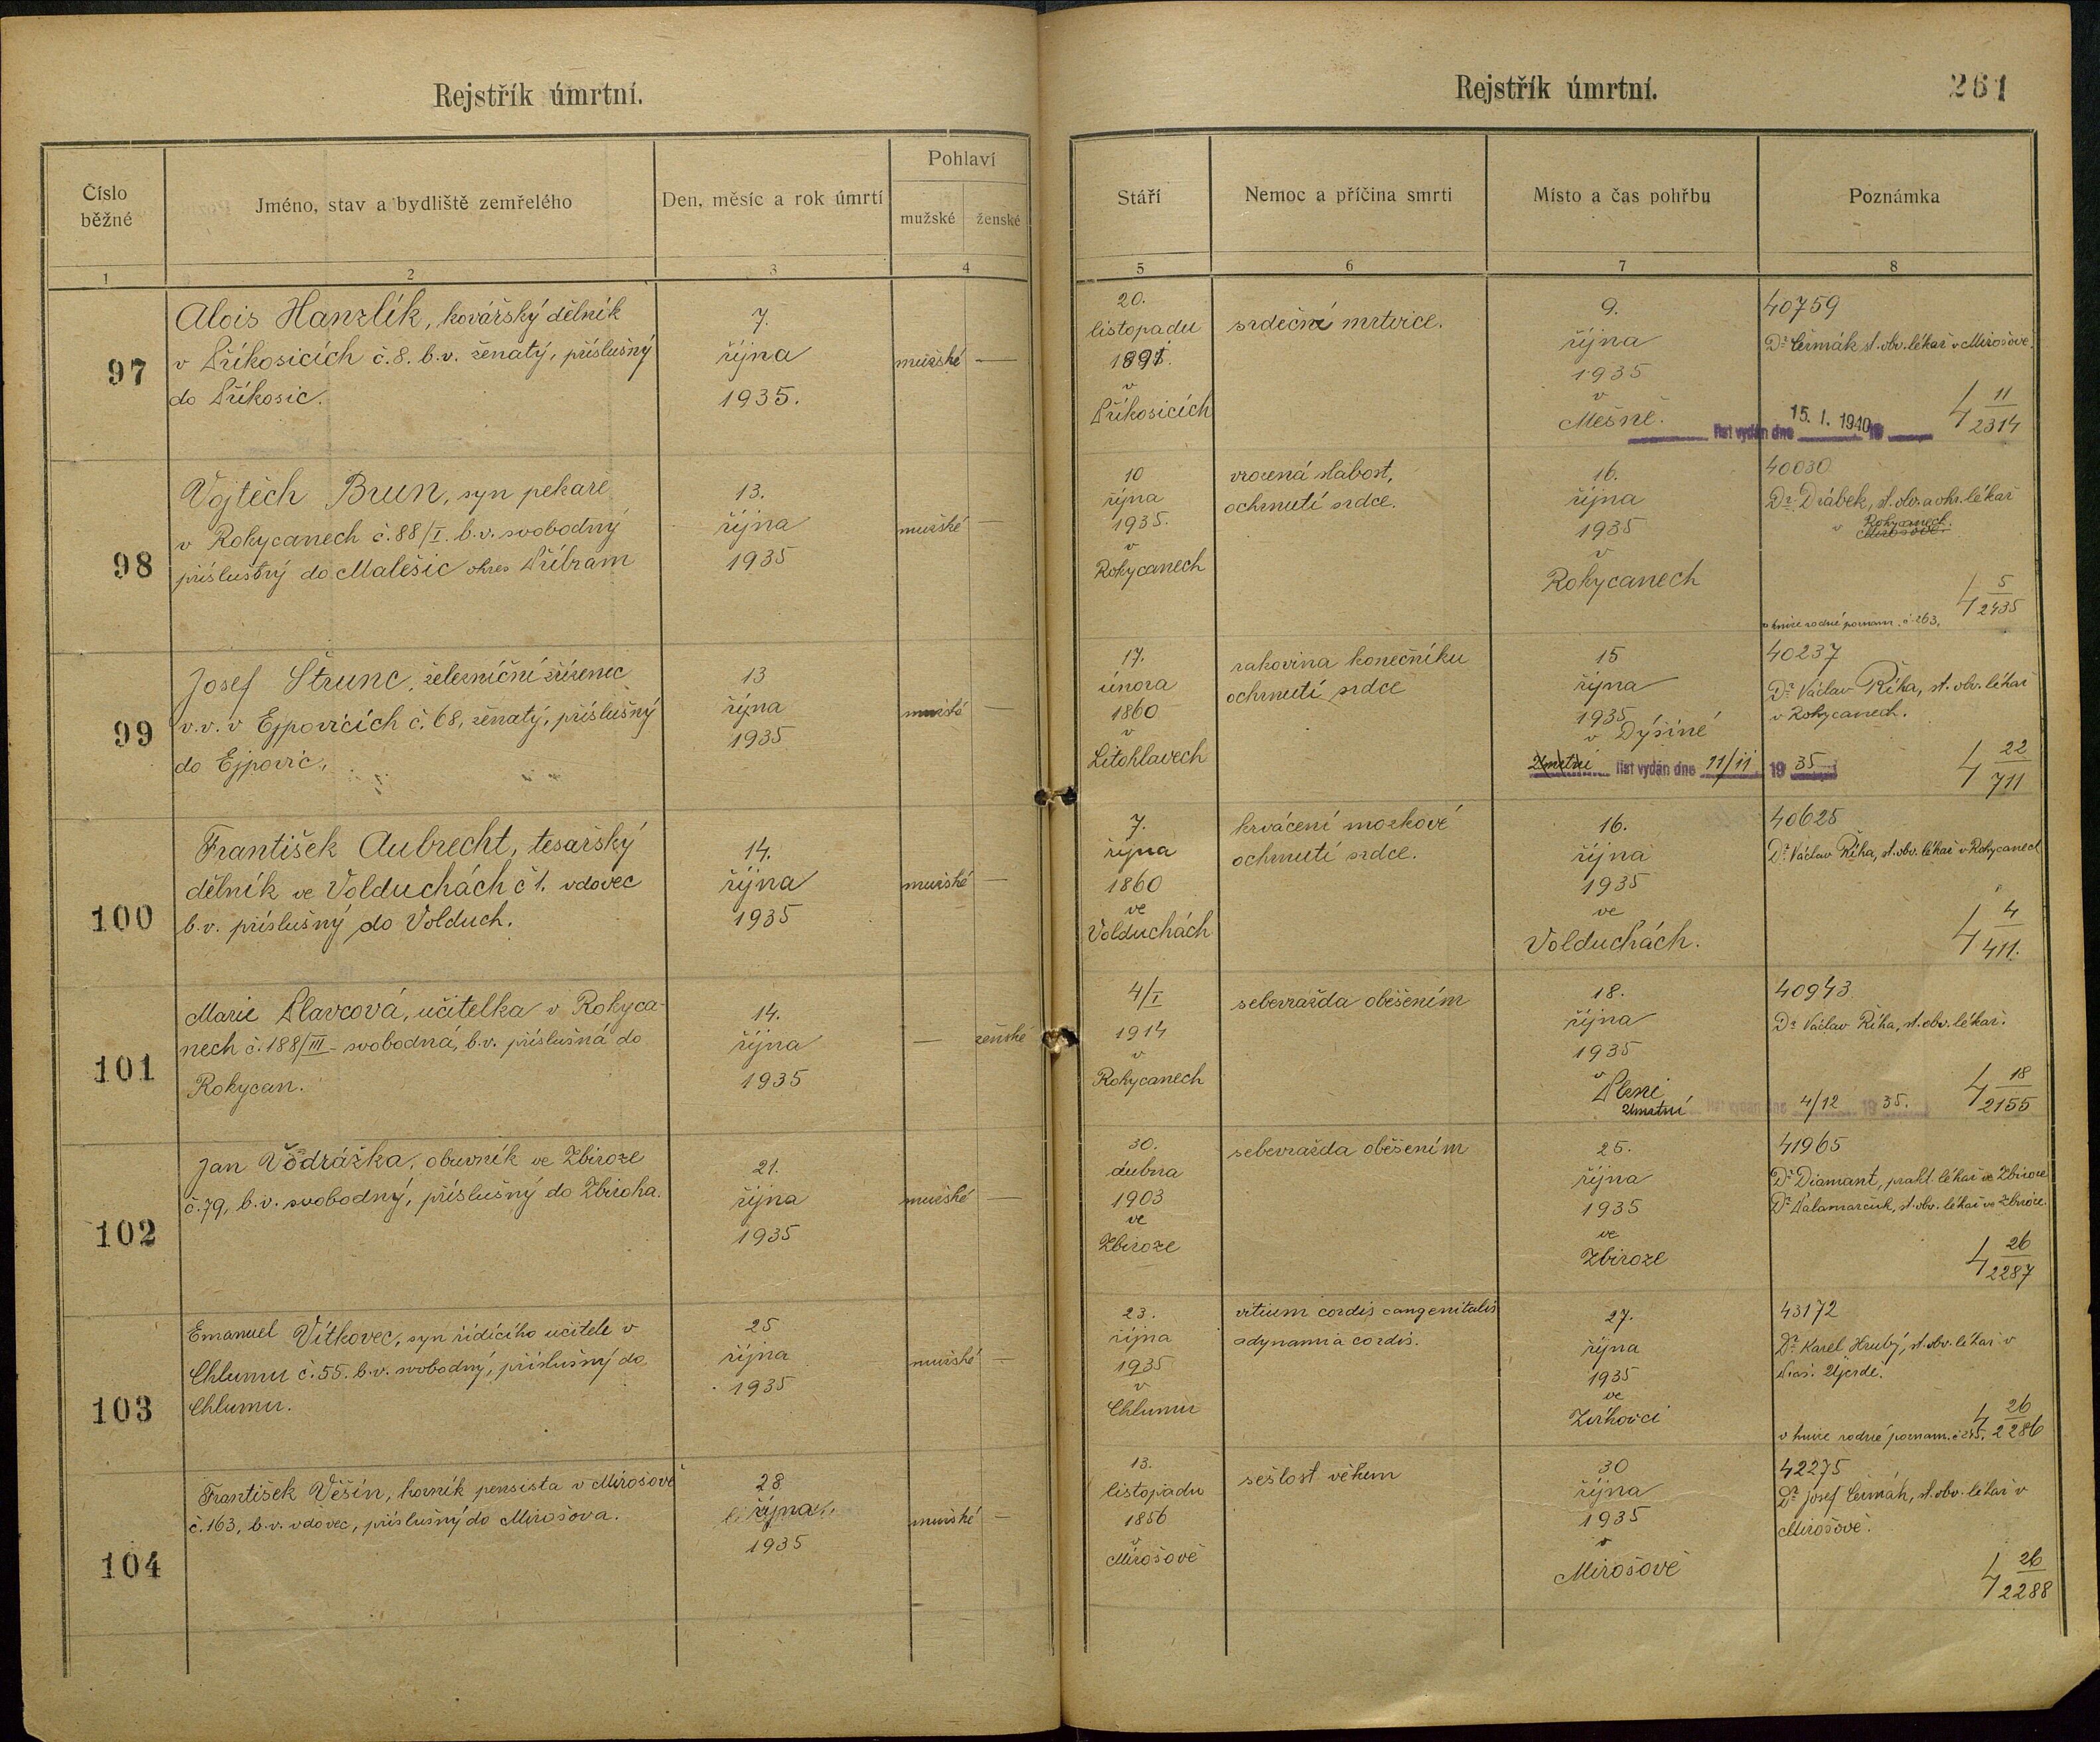 Rejstřík úmrtní.
Rejstřík úmrtní.
261
Číslo běžné
Jméno, stav a bydliště zemřelého
Den, měsíc a rok úmrtí
Pohlaví
mužské
ženské
Stáří
Nemoc a příčina smrti
Místo a čas pohřbu
Poznámka
1
2
3
4
5
6
7
8
97
Alois Hanzlík, kovářský dělník
v Příkosicích č.8. b.v. ženatý, příslušný
do Příkosic.
7.
října
1935.
mužské —
20.
listopadu
1891.
v
Příkosicích
srdeční mrtvice.
9.
října
1935
v
Mešně.
40759
Dr Čermák st. obv. lékař v Mirošově.
list vydán dne 15. I. 1940 19
4 11
2314
98
Vojtěch Brun, syn pekaře
v Rokycanech č.88/I. b.v. svobodný
příslušný do Malešic okres Příbram
13.
října
1935
mužské —
10
října
1935.
v
Rokycanech
vrozená slabost,
ochrnutí srdce.
16.
října
1935
v
Rokycanech
40030
Dr Drábek, st. obv. a okr. lékař
v Rokycanech.
Mirošově.
4 5
2435
v knize rodné poznam. č. 263.
99
Josef Štrunc, železniční zřízenec
v.v. v Ejpovicích č.68, ženatý, příslušný
do Ejpovic.
13
října
1935
mužské —
17.
února
1860
v
Litohlavech
rakovina konečníku
ochrnutí srdce
15
října
1935
v Dýšině
Úmrtní list vydán dne 11/11 19 35
40237
Dr Václav Říha, st. obv. lékař
v Rokycanech.
4 22
711
100
František Aubrecht, tesařský
dělník ve Volduchách č 1. vdovec
b.v. příslušný do Volduch.
14.
října
1935
mužské —
7.
října
1860
ve
Volduchách
krvácení mozkové
ochrnutí srdce.
16.
října
1935
ve
Volduchách.
40625
Dr Václav Říha, st. obv. lékař v Rokycanech
4 4
411.
101
Marie Slavcová, učitelka v Rokyca-
nech č.188/III - svobodná, b.v. příslušná do
Rokycan.
14.
října
1935
— ženské
4/I
1914
v
Rokycanech
sebevražda oběšením
18.
října
1935
v
Plzni
Úmrtní list vydán dne 4/12 19 35.
40943
Dr Václav Říha, st. obv. lékař.
4 18
2155
102
Jan Vodrážka, obuvník ve Zbiroze
č.79, b.v. svobodný, příslušný do Zbiroha.
21.
října
1935
mužské —
30.
dubna
1903
ve
Zbiroze
sebevražda oběšením
25.
října
1935
ve
Zbiroze
41965
Dr Diamant, prakt. lékař ve Zbiroze
Dr Palamarčuk, st. obv. lékař ve Zbiroze.
4 26
2287
103
Emanuel Vítkovec, syn řídícího učitele v
Chlumu č.55. b.v. svobodný, příslušný do
Chlumu.
25
října
1935
mužské —
23.
října
1935
v
Chlumu
vitium cordis cangenitalis
adynamia cordis.
27.
října
1935
ve
Zvíkovci
43172
Dr Karel Hrubý, st. obv. lékař v
Újezdě.
4 26
2286
v knize rodné poznam.
104
František Věšín, horník pensista v Mirošově
č.163, b.v. vdovec, příslušný do Mirošova.
28
října
1935
mužské —
13.
listopadu
1856
v
Mirošově
sešlost věkem
30
října
1935
v
Mirošově
42275
Dr Josef Čermák, st. obv. lékař v
Mirošově.
4 26
2288